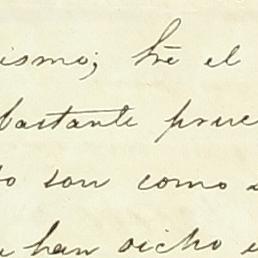 ismo; tré el
bastante prue
o son como
han dicho